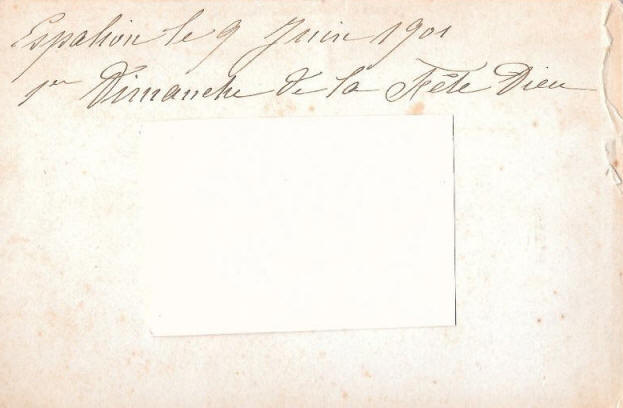 Espalion le 9 Juin 1901
1er Dimanche de la Fête Dieu